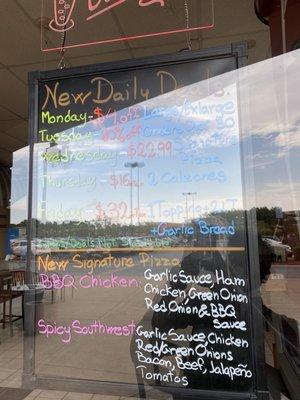 New Daily Deals
Monday - $4 off Large/XLarge
Tuesday -
Wednesday - $22.99 Signature
Pizza
Thursday - $16 2 Calzones
$32 1 Topping
+Garlic Bread
New Signature Pizza
BBQ Chicken: Garlic Sauce, Ham
Chicken, Green Onion
Red Onion & BBQ
Sauce
Spicy Southwest: Garlic Sauce, Chicken
Red/Green Onions
Bacon, Beef, Jalapeño
Tomatos